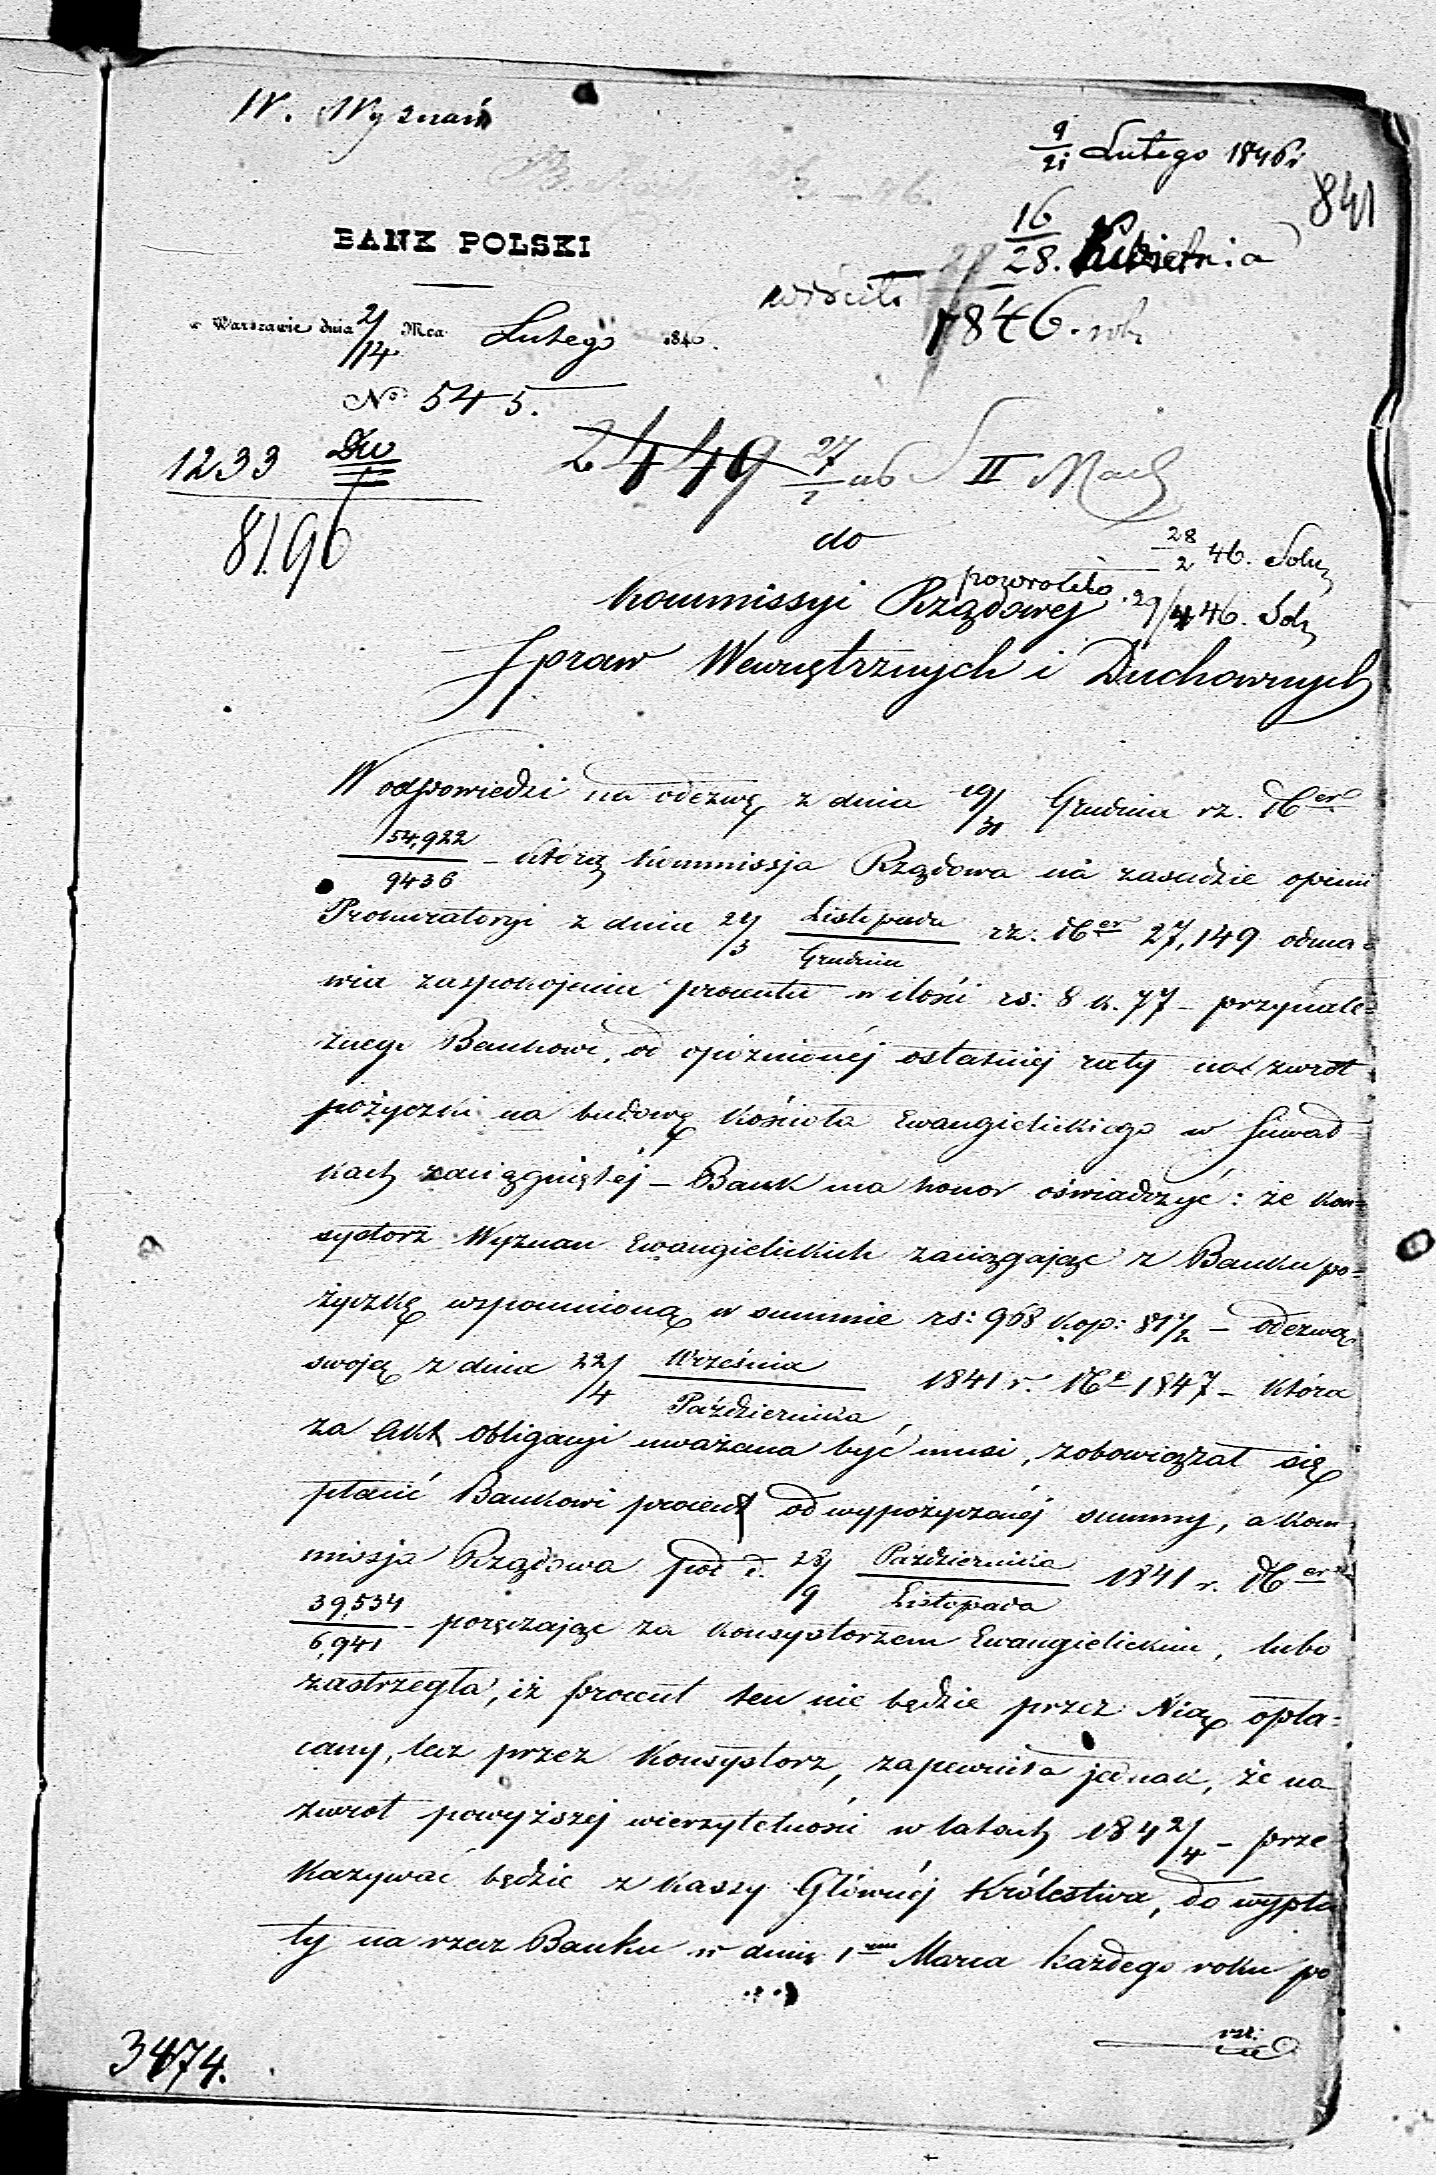 W. Wyznań
9/21 Lutego 1846 r
841
16/28. Kwietnia
wróciło 1846. rok
BANK POLSKI
w Warszawie dnia 2/14 Mca Lutego 1846.
No 545.
1233
8196
2449 II
do
28/2 46.
Kommissyi Rządowej
powrotnie 29/4 46.
Spraw Wewnętrznych i Duchownych
W odpowiedzi na odezwę z dnia 19/31 Grudnia rz. Ner
54,922/9436 – którą Kommissja Rządowa na zasadzie opinii
Prokuratoryi z dnia 21/3 Listopada/Grudnia rz: Ner 27,149 odma=
wia zaspokojenia procentu w ilości rs: 8 k. 77 – przynale=
żnego Bankowi, od opóźnionéj ostatniej raty na zwrot
pożyczki na budowę Kościoła Ewangielickiego w Suwał=
kach zaciągniętéj – Bank ma honor oświadczyć: że Kon=
systorz Wyznań Ewangielickich zaciągając z Banku po=
życzkę wspomnioną w summie rs: 968 kop: 81½ – odezwą
swoją z dnia 22/4 Września/Października 1841 r. No 1847 – która
za akt obligacyi uważana być musi, zobowiązał się
płacić Bankowi procent od wypożyczonéj summy, a Kom=
missja Rządowa pod d. 28/9 Października/Listopada 1841 r. Ner
39,534/6,941 – poręczając za Konsystorzem Ewangielickim, lubo
zastrzegła, iż procent ten nie będzie przez Nią opła=
cany, lecz przez Konsystorz, zapewniła jednak, że na
zwrot powyższéj wierzytelności w latach 1842/4 – prze
kazywać będzie z Kassy Głównéj Królestwa, do wypła
ty na rzecz Banku w dniu 1 Marca każdego roku po
rs:
3474.